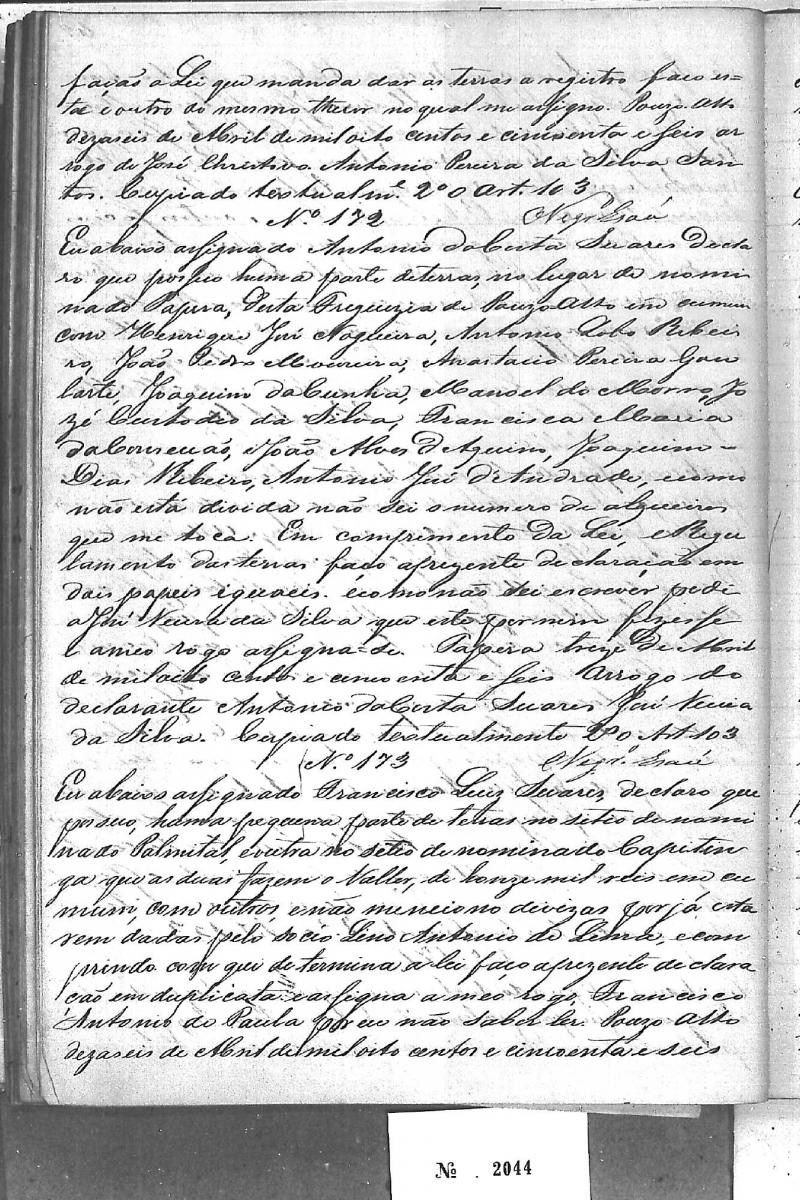 fação a Lei que manda dar as terras a registro faco es=
te e outro do mesmo theor no qual me assigno. Pouzo Alto
dezaseis de Abril de mil oito centos e cincoenta e seis ar
rogo de José Christovo Antonio Pereira da Silva San
tos. Copiado textualm.e 2º o Art. 103
Nº 172
Eu abaixo assignado Antonio da Costa Suares decla
ro que possuo huma parte de terras, no lugar de nomi
nado Papera, desta Freguezia de Pouzo Alto em cumum
com Henrique José Nogueira, Antonio Lobo Ribei
ro, João Pedro Moreira, Anastacio Pereira Gou
larte, Joaquim da Cunha, Manoel do Morro, Jo
zé Custodio da Silva, Francisca Maria
da Consecuão, e João Alves d'Aquino, Joaquim =
Dias Ribeiro, Antonio José d'Andrade, e como
não está divida não sei o numero de alqueires
que me toca. Em comprimento da Lei, e Regu
lamento das terras faco aprezente declaração em
dois papeis iguaeis. e como não sei escrever pedi
a José Vieira da Silva que este por mim fizesse
e a meo rogo assigna-se. Papera treze de Abril
de mil oito cento e cincoenta e seis Arrogo do
declarante Antonio da Costa Suares José Vieira
da Silva. Copiado textualmente 2º o Art 103
Nº 173
Eu abaixo assignado Francisco Luiz Suares, declaro que
possuo, huma pequena parte de terras no setio de nomi
nado Palmital, e outra no setio de nominado Capitin
ga que as duas fazem o Vallor, de honze mil reis em cu
mum, com outros, e não menciono divizas por já esta
rem dadas pelo socio Lino Antonio de Lima, e com
prindo com que determina a lei faço aprezente declara
cão em duplicata e assigna a meo rogo, Francisco
Antonio de Paula por eu não saber ler. Pouzo Alto
dezaseis de Abril de mil oito centos e cincoenta e seis
Nº 2044